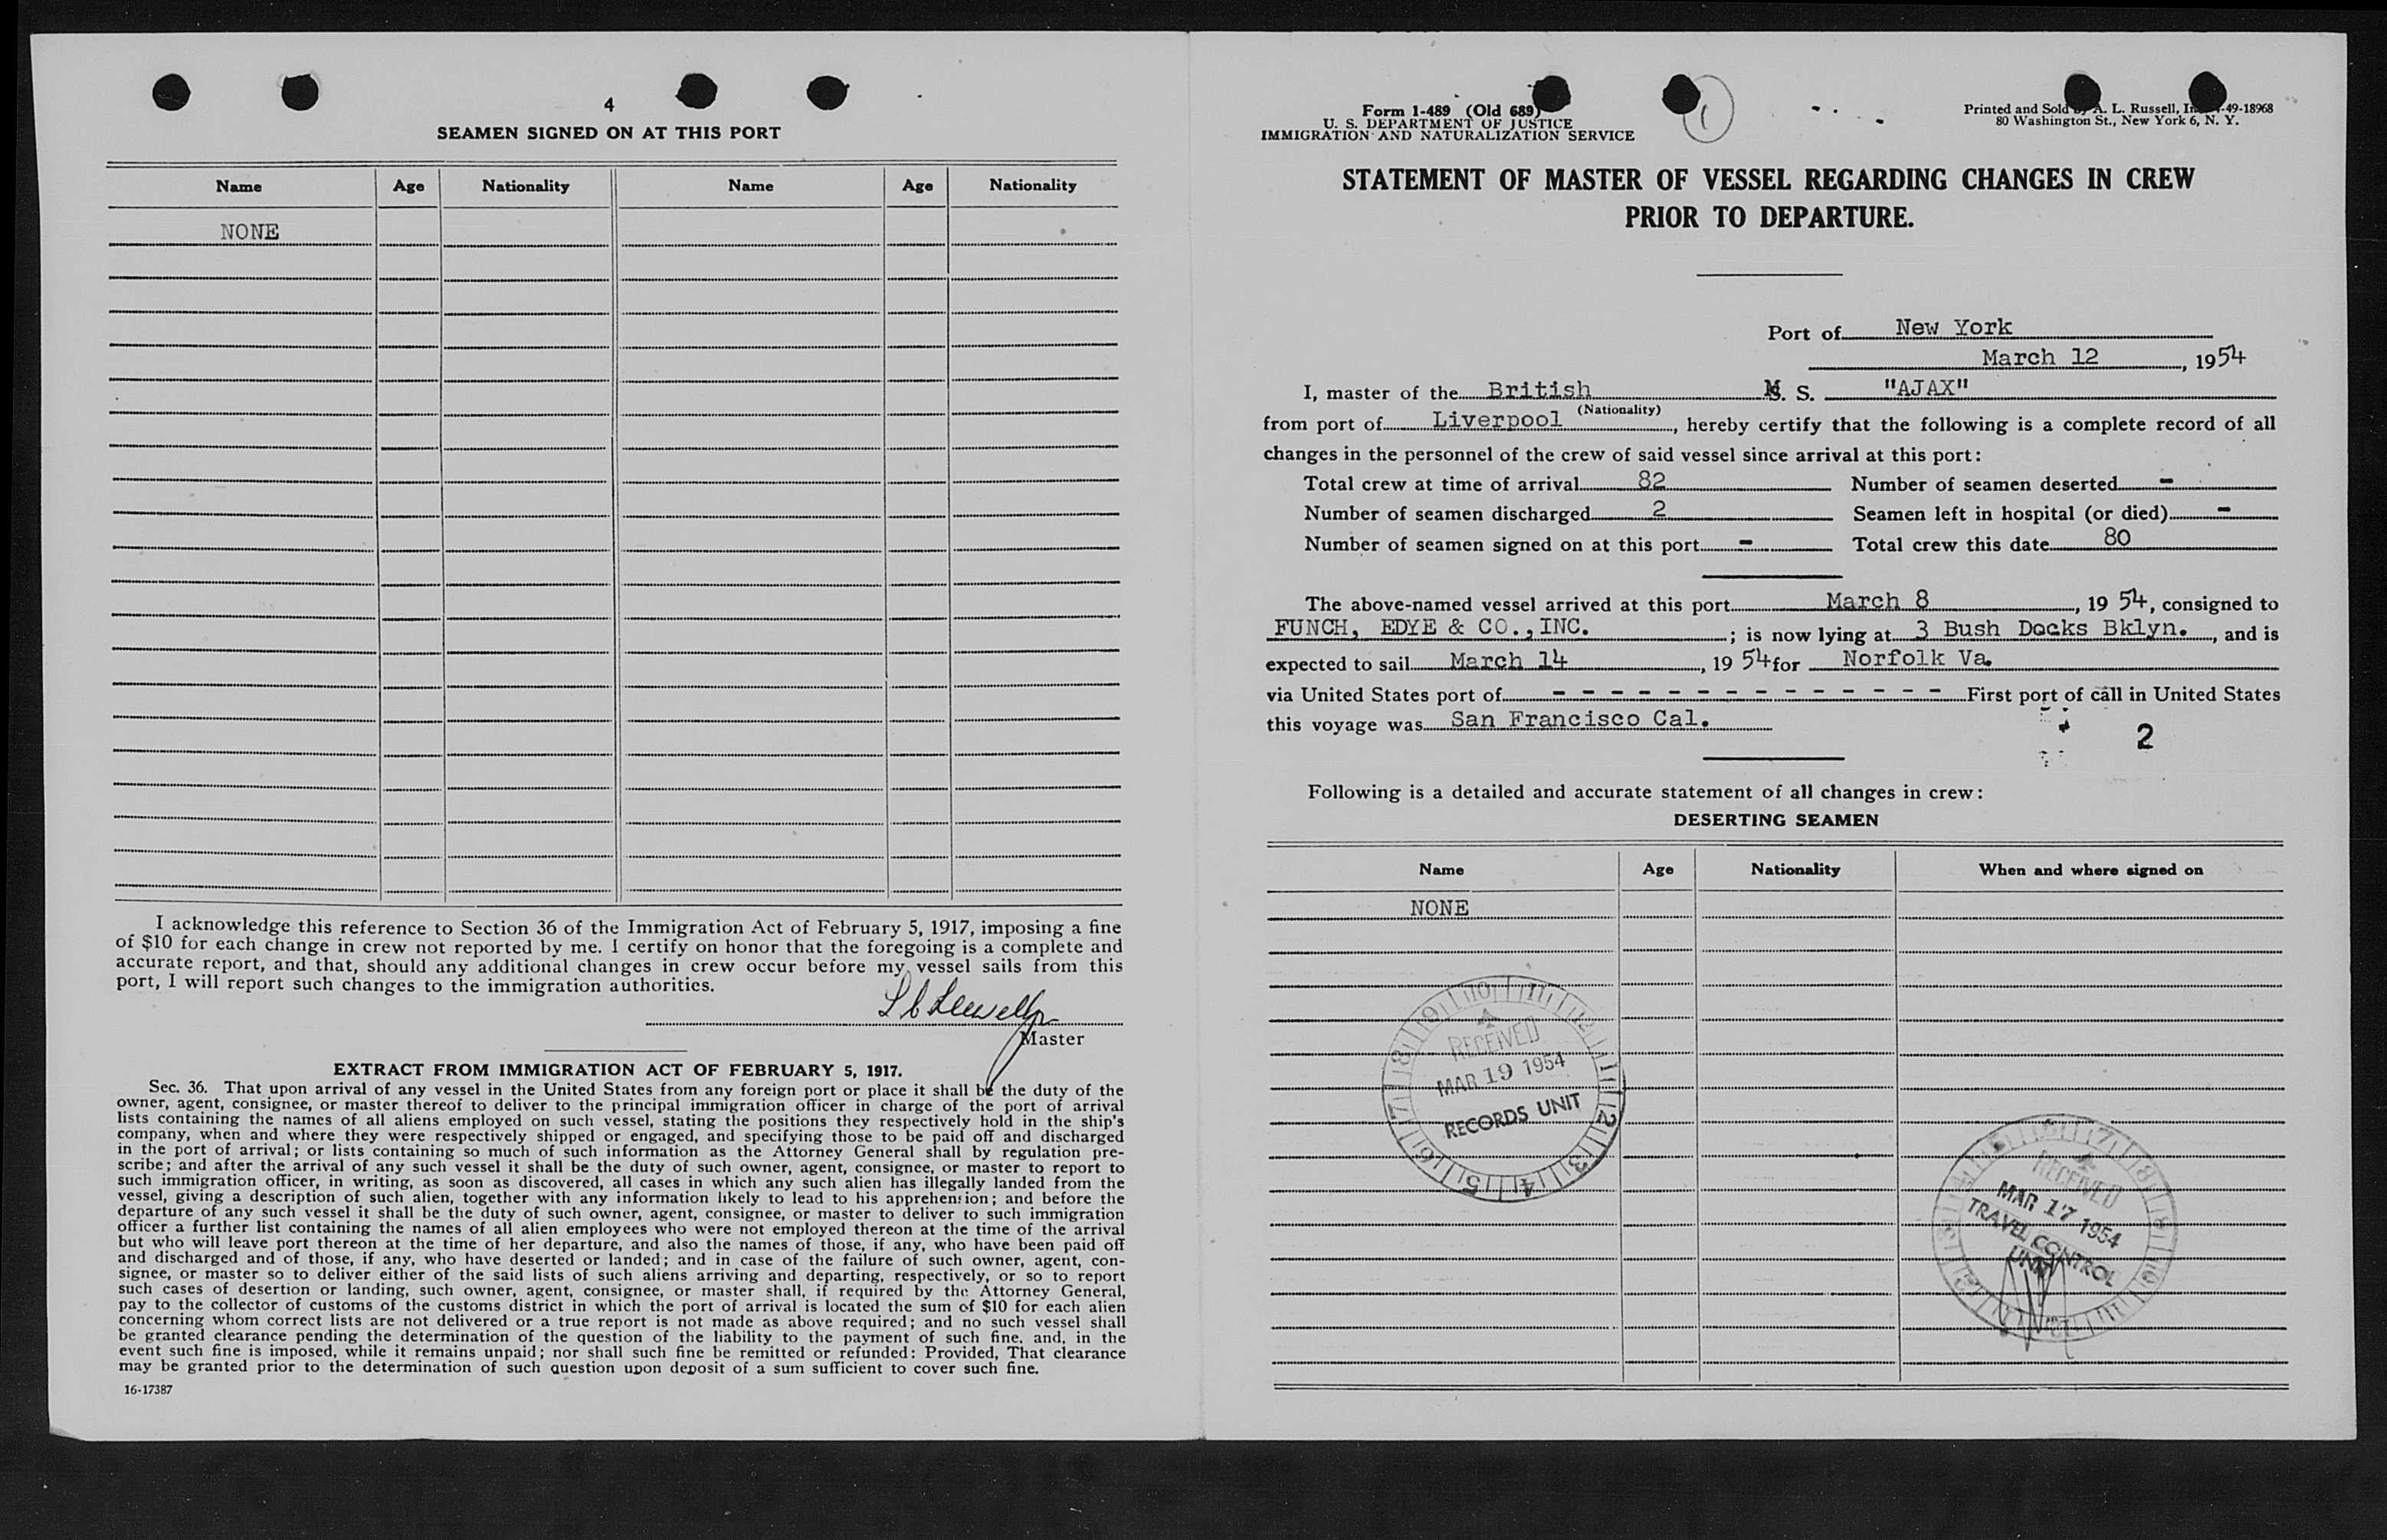 4
SEAMEN SIGNED ON AT THIS PORT
Name Age Nationality Name Age Nationality
NONE
I acknowledge this reference to Section 36 of the Immigration Act of February 5, 1917, imposing a fine
of $10 for each change in crew not reported by me. I certify on honor that the foregoing is a complete and
accurate report, and that, should any additional changes in crew occur before my vessel sails from this
port, I will report such changes to the immigration authorities.
Master
EXTRACT FROM IMMIGRATION ACT OF FEBRUARY 5, 1917.
Sec. 36. That upon arrival of any vessel in the United States from any foreign port or place it shall be the duty of the
owner, agent, consignee, or master thereof to deliver to the principal immigration officer in charge of the port of arrival
lists containing the names of all aliens employed on such vessel, stating the positions they respectively hold in the ship's
company, when and where they were respectively shipped or engaged, and specifying those to be paid off and discharged
in the port of arrival; or lists containing so much of such information as the Attorney General shall by regulation pre-
scribe; and after the arrival of any such vessel it shall be the duty of such owner, agent, consignee, or master to report to
such immigration officer, in writing, as soon as discovered, all cases in which any such alien has illegally landed from the
vessel, giving a description of such alien, together with any information likely to lead to his apprehension; and before the
departure of any such vessel it shall be the duty of such owner, agent, consignee, or master to deliver to such immigration
officer a further list containing the names of all alien employees who were not employed thereon at the time of the arrival
but who will leave port thereon at the time of her departure, and also the names of those, if any, who have been paid off
and discharged and of those, if any, who have deserted or landed; and in case of the failure of such owner, agent, con-
signee, or master so to deliver either of the said lists of such aliens arriving and departing, respectively, or so to report
such cases of desertion or landing, such owner, agent, consignee, or master shall, if required by the Attorney General,
pay to the collector of customs of the customs district in which the port of arrival is located the sum of $10 for each alien
concerning whom correct lists are not delivered or a true report is not made as above required; and no such vessel shall
be granted clearance pending the determination of the question of the liability to the payment of such fine, and, in the
event such fine is imposed, while it remains unpaid; nor shall such fine be remitted or refunded: Provided, That clearance
may be granted prior to the determination of such question upon deposit of a sum sufficient to cover such fine.
16-17387
Form 1-489 (Old 689)
U. S. DEPARTMENT OF JUSTICE
IMMIGRATION AND NATURALIZATION SERVICE
1
Printed and Sold by A. L. Russell, -49-18968
80 Washington St., New York 6, N. Y.
STATEMENT OF MASTER OF VESSEL REGARDING CHANGES IN CREW
PRIOR TO DEPARTURE.
Port of New York
March 12, 1954
I, master of the British M. S. "AJAX"
(Nationality)
from port of Liverpool, hereby certify that the following is a complete record of all
changes in the personnel of the crew of said vessel since arrival at this port:
Total crew at time of arrival 82 Number of seamen deserted -
Number of seamen discharged 2 Seamen left in hospital (or died) -
Number of seamen signed on at this port - Total crew this date 80
The above-named vessel arrived at this port March 8, 1954, consigned to
FUNCH, EDYE & CO., INC.; is now lying at 3 Bush Docks Bklyn., and is
expected to sail March 14, 1954 for Norfolk Va.
via United States port of - - - - - - - - - - - - - - First port of call in United States
this voyage was San Francisco Cal.
2
Following is a detailed and accurate statement of all changes in crew:
DESERTING SEAMEN
Name Age Nationality When and where signed on
NONE
RECEIVED
MAR 19 1954
RECORDS UNIT
RECEIVED
MAR 17 1954
TRAVEL CONTROL
UNIT